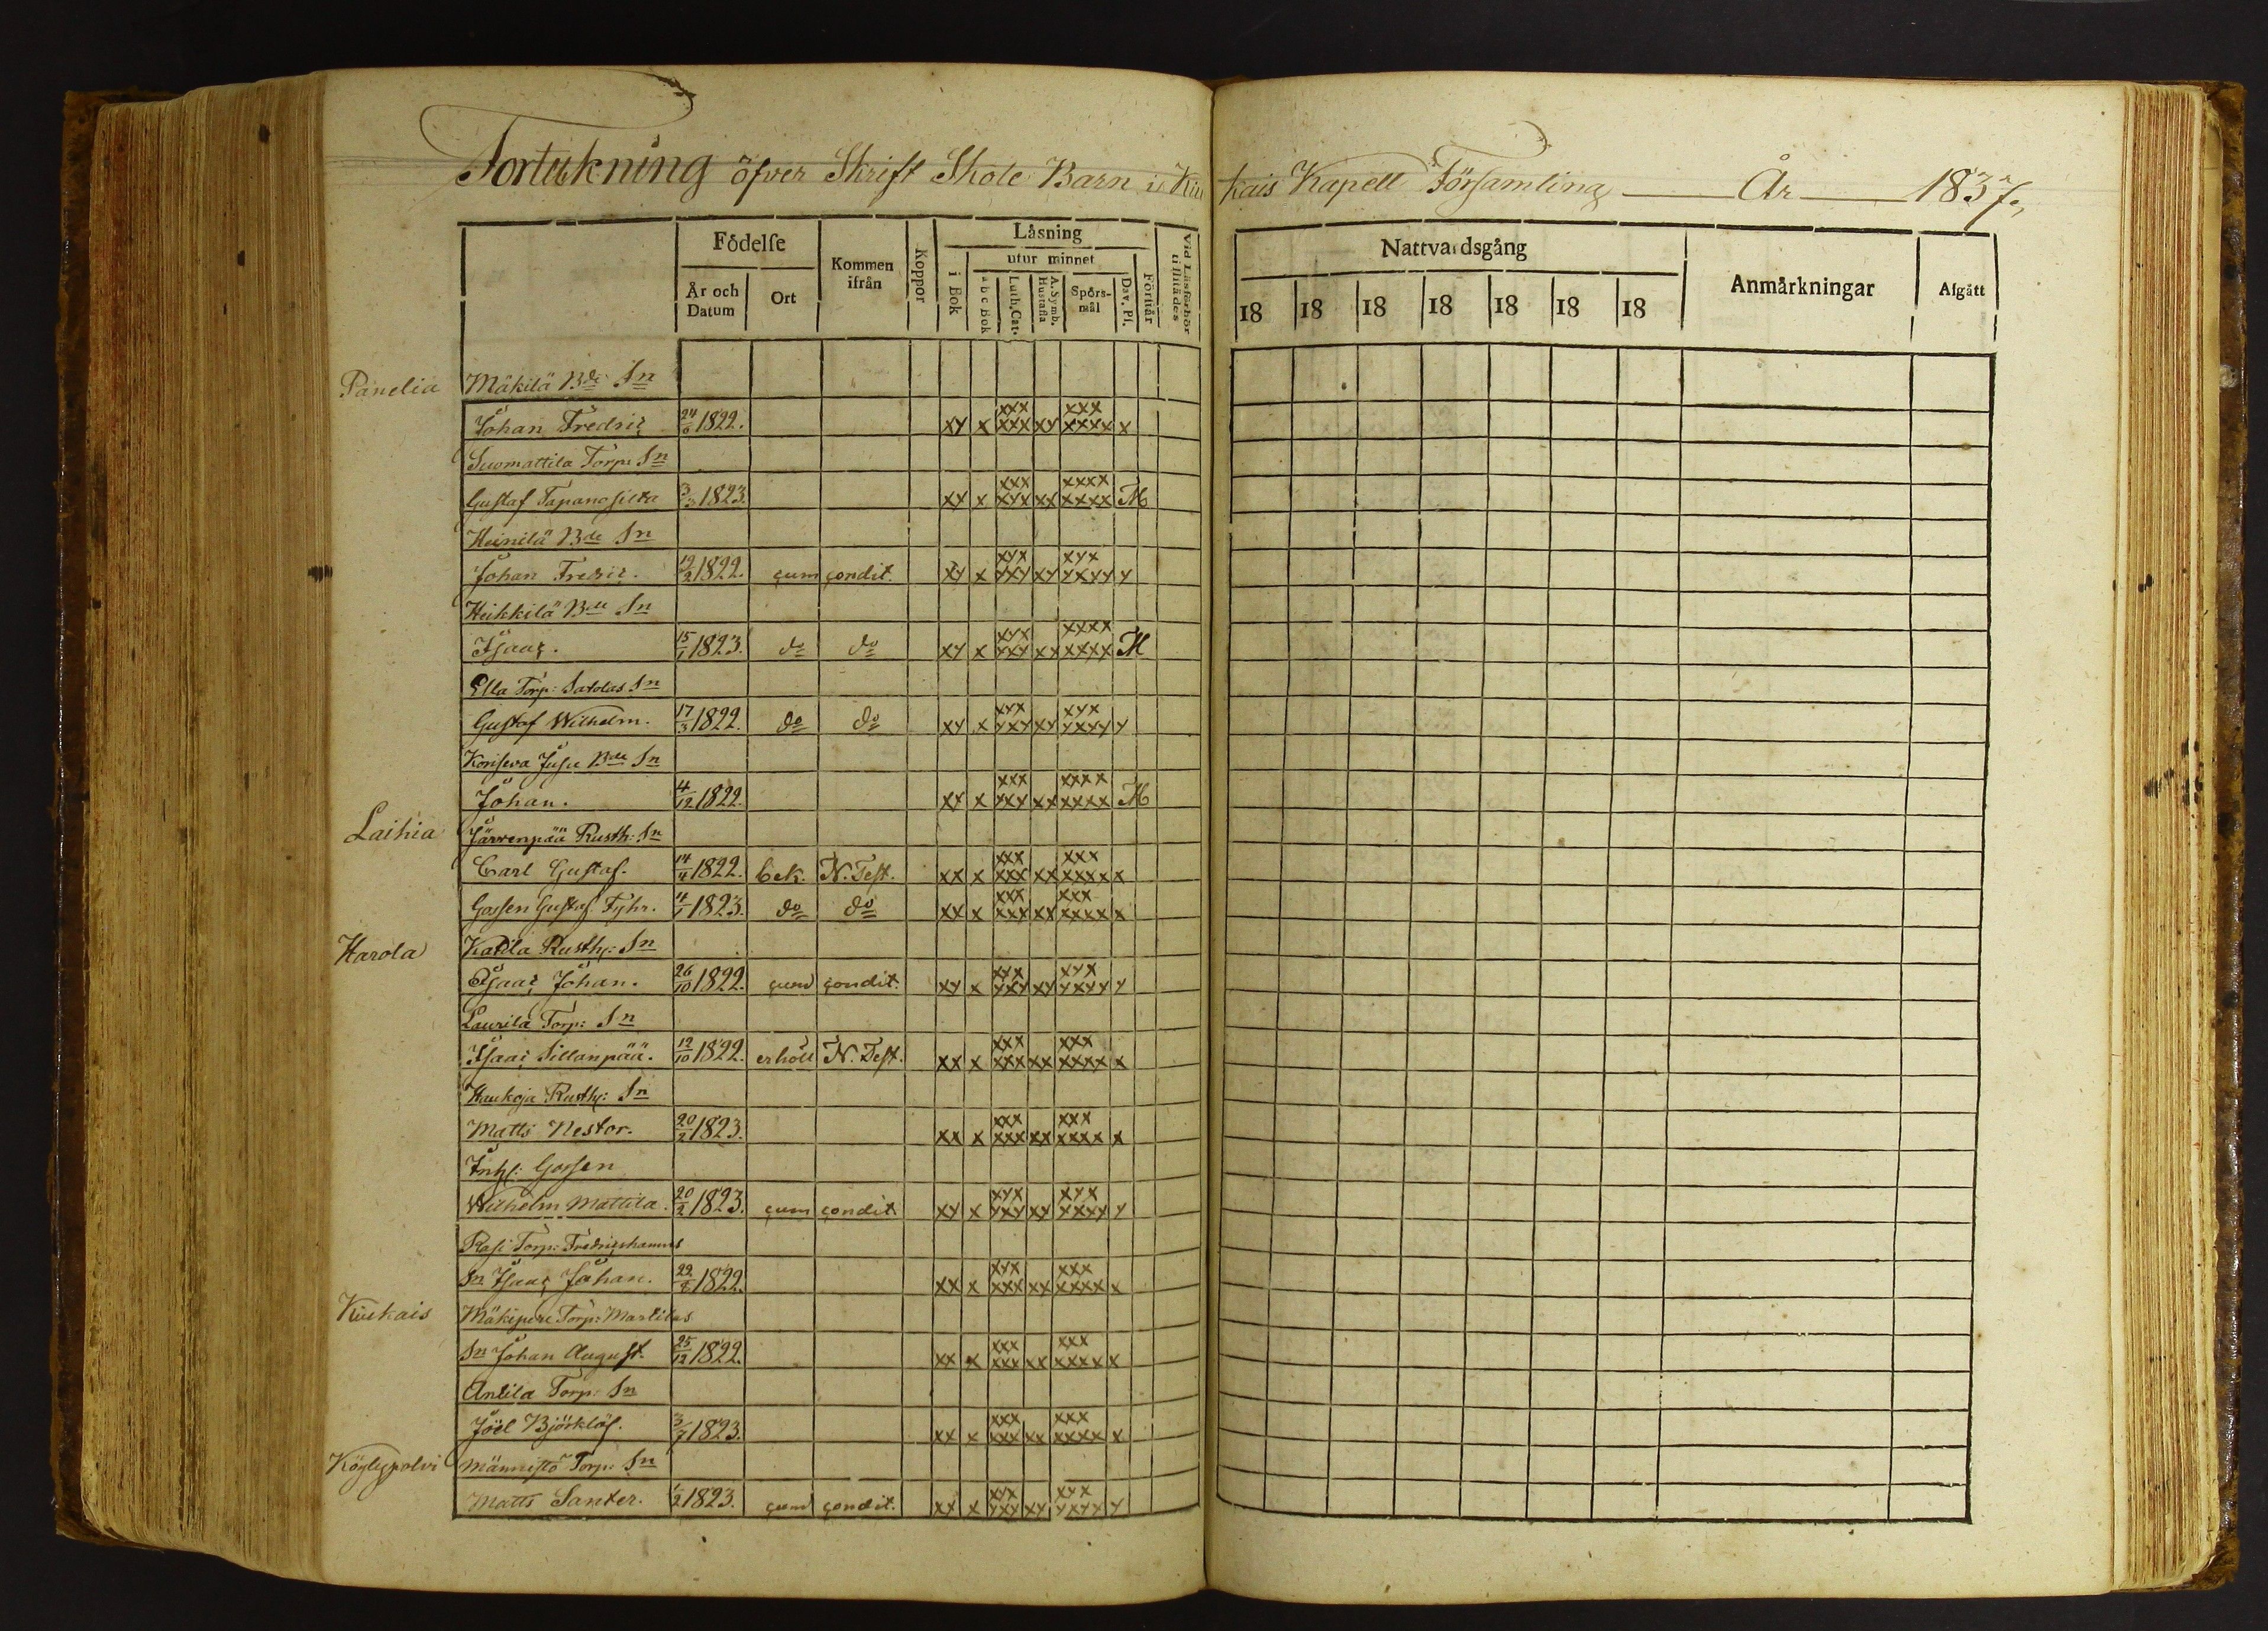 Förtekning öfver Skrift Skole Barn i Kiukais Kapell Församling År 1837
Födelse
Kommen ifrån
Koppor
Läsning
utur minnet
År och Datum
Ort
i Bok
a b c Bok
Luth. Cat.
A. Symb. Hustafla
Spörsmål
Dav. Pl.
Förstår
Vid Läsförhör tillstädes
Nattvardsgång
Anmärkningar
Afgått
18 18 18 18 18 18 18
Panelia Mäkilä Bde Sn
Johan Fredric 24/6 1822. xy x xxx xxx xy xxx xxxx x
Suomattila Torp: Sn
Gustaf Tapanosilta 3/3 1823. xy x xxx xyx xx xxxx xxxx M
Heinilä Bde Sn
Johan Fredric. 19/2 1822. cum condit. xy x xyx yxy xy xyx yxyy y
Heikkilä Bde Sn
Isaac. 15/1 1823. do do xy x xyx yxy xx xxxx xxxx M
Ella Torp: Satolas Sn
Gustaf Wilhelm. 17/3 1822. do do xy x xyx yxy xy xyx yxyy y
Korseva Juse Bde Sn
Johan. 4/12 1822. xy x xxx yxy xx xxxx xxxx M
Laihia Järvenpää Rusth: Sn
Carl Gustaf. 14/4 1822. bek. N. Test. xx x xxx xxx xx xxx xxxx x
Gossen Gustaf Fyhr. 4/1 1823. do do xx x xxx xxx xx xxx xxxx x
Harola Katila Rusth: Sn
Isaac Johan. 26/10 1822. cum condit. xy x xyx yxy xy xyx yxyy y
Laurila Torp: Sn
Isaac Sillanpää. 12/10 1822. erhöll N. Test. xx x xxx xxx xx xxx xxxx x
Haukoja Rusth: Sn
Matts Nestor. 20/2 1823. xx x xxx xxx xx xxx xxxx x
Inh: Gossen
Wilhelm Mattila. 20/2 1823. cum condit. xy x xyx yxy xy xyx yxyy y
Rasi Torp: Fredricshamns
Sn Isaac Johan. 22/8 1822. xx x xyx xxx xx xxx xxxx x
Kiukais Mäkipere Torp: Martilas
Sn Johan August. 25/12 1822. xx x xxx xxx xx xxx xxxx x
Antila Torp: Sn
Joel Björklöf. 3/7 1823. xx x xxx xxx xx xxx xxxx x
Köylypolvi Männistö Torp: Sn
Matts Santer. 1/2 1823. cum condit. xy x xyx yxy xy xyx yxyy y